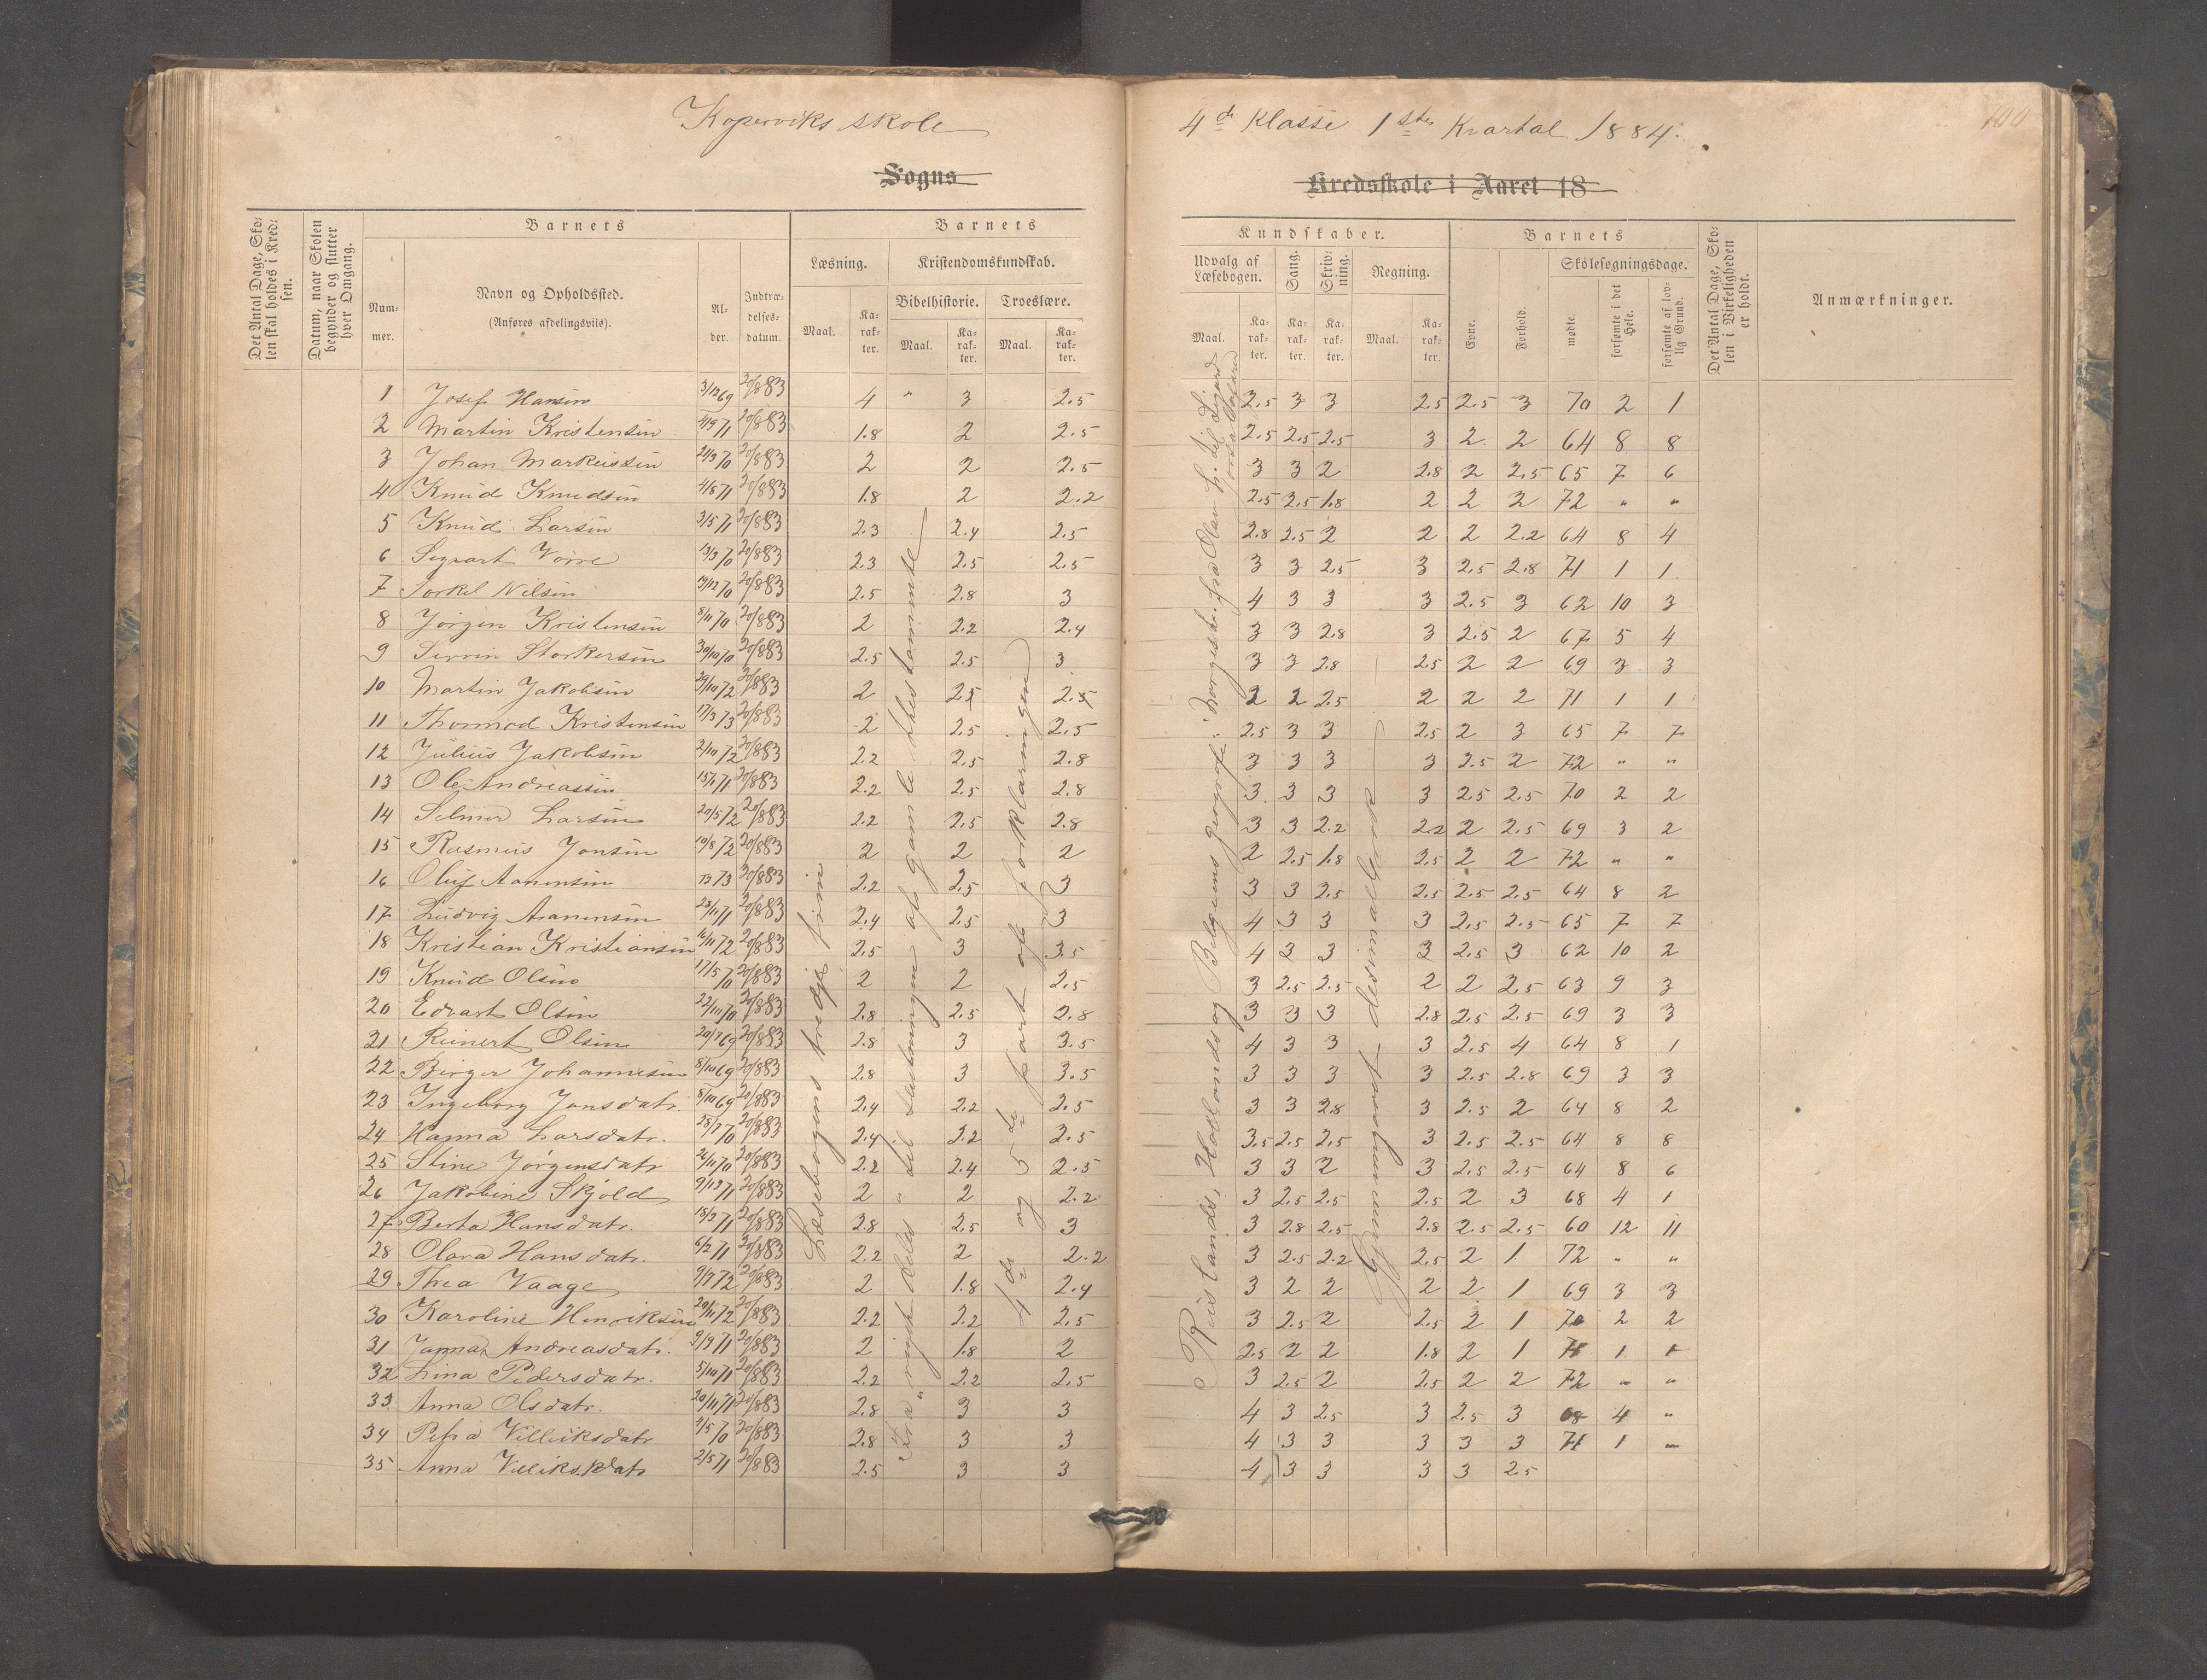 Koperviks skole
4de Klasse 1ste Kvartal 1884.
100
Sogns
Kredsskole i Aaret 18
Det Antal Dage, Skolen skal holdes i Kredsen.
Datum, naar Skolen begynder og slutter hver Omgang.
Barnets
Nummer.
Navn og Opholdssted.
(Anføres afdelingsviis).
Alder.
Indtrædelsesdatum.
Barnets
Læsning.
Maal.
Karakter.
Kristendomskundskab.
Bibelhistorie.
Maal.
Karakter.
Troeslære.
Maal.
Karakter.
Kundskaber.
Udvalg af Læsebogen.
Maal.
Karakter.
Sang.
Karakter.
Skrivning.
Karakter.
Regning.
Maal.
Karakter.
Barnets
Evne.
Forhold.
Skolesøgningsdage.
mødte.
forsømte i det Hele.
forsømte af lovlig Grund.
Det Antal Dage, Skolen i Virkeligheden er holdt.
Anmærkninger.
1 Josef Hansen 3/12 69 20/8 83 4 " 3 2.5 2.5 3 3 2.5 2.5 3 70 2 1
2 Martin Kristensen 20/8 83 1.8 2 2.5 2.5 2.5 2.5 3 2 2 64 8 8
3 Johan Markussen 21/3 70 20/8 83 2 2 2.5 3 3 2 2.8 2 2.5 65 7 6
4 Knud Knudsen 4/8 71 20/8 83 1.8 2 2.2 2.5 2.5 1.8 2 2 2 72 " "
5 Knud Larsen 3/5 71 20/8 83 2.3 2.4 2.5 2.8 2.5 2 2 2 2.2 64 8 4
6 Sigvart Vorre 13/3 70 20/8 83 2.3 2.5 2.5 3 3 2.5 3 2.5 2.8 71 1 1
7 Torkel Nilsen 20/8 83 2.5 2.8 3 4 3 3 3 2.5 3 62 10 3
8 Jørgen Kristensen 8/11 70 20/8 83 2 2.2 2.4 3 3 2.8 3 2.5 2 67 5 4
9 Storkersen 30/10 70 20/8 83 2.5 2.5 3 3 3 2.8 2.5 2 2 69 3 3
10 Martin Jakobsen 29/10 72 20/8 83 2 2.5 2 2 2.5 2 2 2 71 1 1
11 Thormod Kristensen 17/3 73 20/8 83 2 2.5 2.5 2.5 3 3 2.5 2 3 65 7 7
12 Julius Jakobsen 2/10 72 20/8 83 2.2 2.5 2.8 3 3 3 3 2.5 2 72 " "
13 Ole Andreassen 15/1 71 20/8 83 2.2 2.5 2.8 3 3 3 3 2.5 2.5 70 2 2
14 Selmer Larsen 20/5 72 20/8 83 2.2 2.5 2.8 3 3 2.2 2.2 2 2.5 69 3 2
15 Rasmus Jonsen 10/8 72 20/8 83 2 2 2 2 2.5 1.8 2.5 2 2 72 " "
16 Oluf Aanensen 73 20/8 83 2.2 2.5 3 3 3 2.5 2.5 2.5 2.5 64 8 2
17 Ludvig Aanensen 23/11 71 20/8 83 2.4 2.5 3 4 3 3 3 2.5 2.5 65 7 7
18 Kristian Kristiansen 16/11 72 20/8 83 2.5 3 3.5 4 3 3 3 2.5 3 62 10 2
19 Knud Olsen 17/5 70 20/8 83 2 2 2.5 3 2.5 2.5 2 2 2.5 63 9 3
20 Edvart Olsen 22/10 70 20/8 83 2.8 2.5 2.8 3 3 3 2.8 2.5 2.5 69 3 3
21 Reinert Olsen 20/7 69 20/8 83 2.8 3 3.5 4 3 3 3 2.5 4 64 8 1
22 Birger Johannesen 8/10 69 20/8 83 2.8 3 3.5 3 3 3 3 2.5 2.8 69 3 3
23 Ingeborg Jonsdatr. 8/10 69 20/8 83 2.4 2.2 2.5 3 3 2.8 3 2.5 2 64 8 2
24 Hanna Larsdatr. 28/7 70 20/8 83 2.4 2.2 2.5 3.5 2.5 2.5 3 2.5 2.5 64 8 8
25 Stine Jørgensdatr 26/11 70 20/8 83 2.2 2.4 2.5 3 3 2 3 2.5 2.5 64 8 6
26 Jakobine Skjold 9/12 71 20/8 83 2 " 2 2.2 3 2.5 2.5 2.5 2 3 68 4 1
27 Berta Hansdatr. 18/2 71 20/8 83 2.8 2.5 3 3 2.8 2.5 2.8 2.5 2.5 60 12 11
28 Olava Hansdatr. 6/2 71 20/8 83 2.2 2 2.2 3 2.5 2.2 2.5 2 1 72 " "
29 Thea Vaage 9/7 72 20/8 83 2 1.8 2.4 3 2 2 2 2 1 69 3 3
30 Karoline Henriksen 20/11 72 20/8 83 2.2 2.2 2.5 3 2.5 2 2.5 2 1 70 2 2
31 Janna Andreasdatr. 9/9 71 20/8 83 2 1.8 2 2.5 2 2 1.8 2 1 71 1 1
32 Lina Pedersdatr. 5/10 71 20/8 83 2.2 2.2 2.5 3 2.5 2 2.5 2 2 72 " "
33 Anna Olsdatr. 20/11 71 20/8 83 2.8 3 3 4 3 2.5 3 2.5 3 68 4 "
34 Petra Villiksdatr 9/5 70 20/8 83 2.8 3 3 4 3 3 3 3 3 71 1 "
35 Anna Villiksdatr 2/5 71 20/8 83 2.5 3 3 4 3 3 3 3 2.5
Læsebogens tredje
Fra "nyt Dels" til Slutningen af gamle Thestammente
4de og 5te part af Forklaringen
Ruslands, Hollands og Belgiens geografi: Norgeshi. fra Olav h. til Sigurd Jorsalfar
Gjennemgaaet desimalbrøk